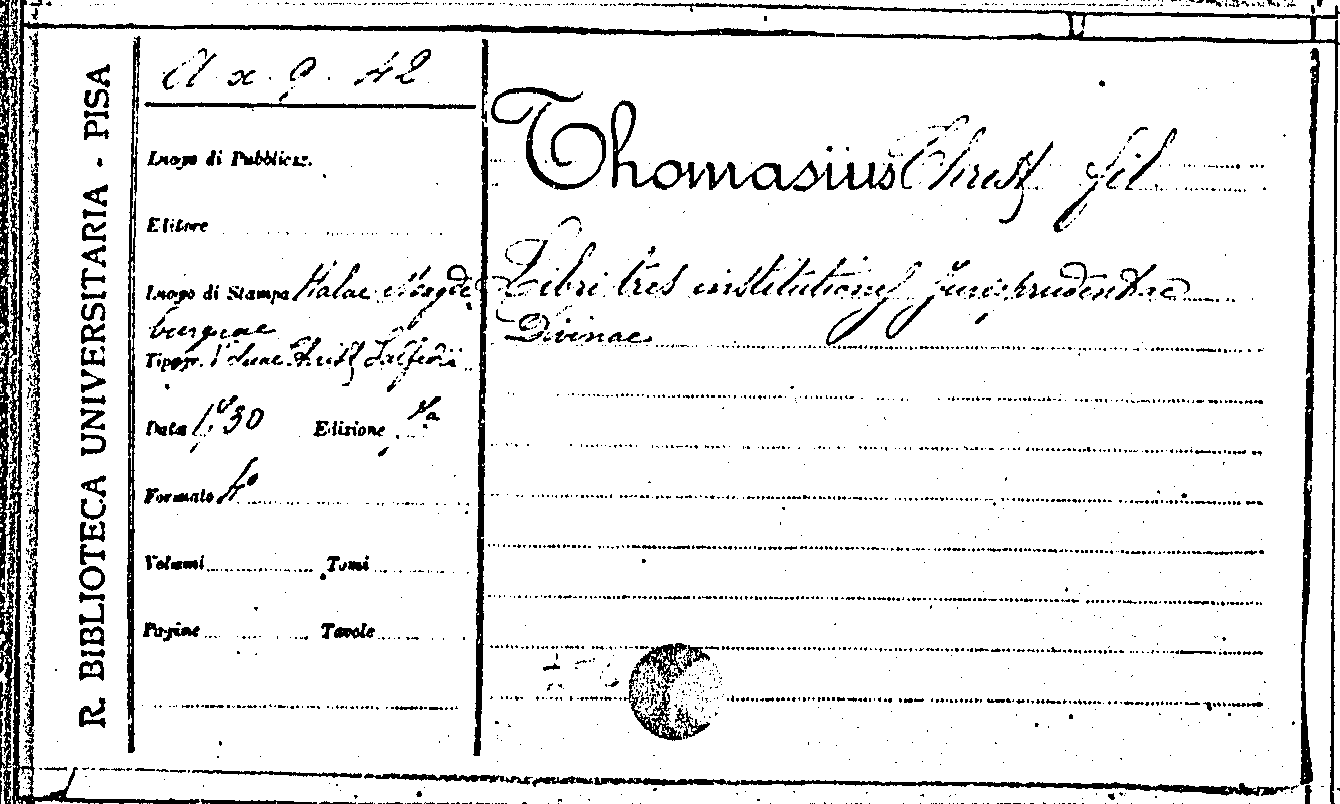 R. BIBLIOTECA UNIVERSITARIA - PISA
A x. 9. 42
Luogo di Pubblicaz.
Editore
Luogo di Stampa Halae Magde
burgicae
Tipogr. Christ Salfedii
Data 1730 Edizione 7a
Formato 4°
Volumi Tomi
Pagine Tavole
Thomasius Christ fil
Libri tres institutiones Jurisprudentiae
Divinae